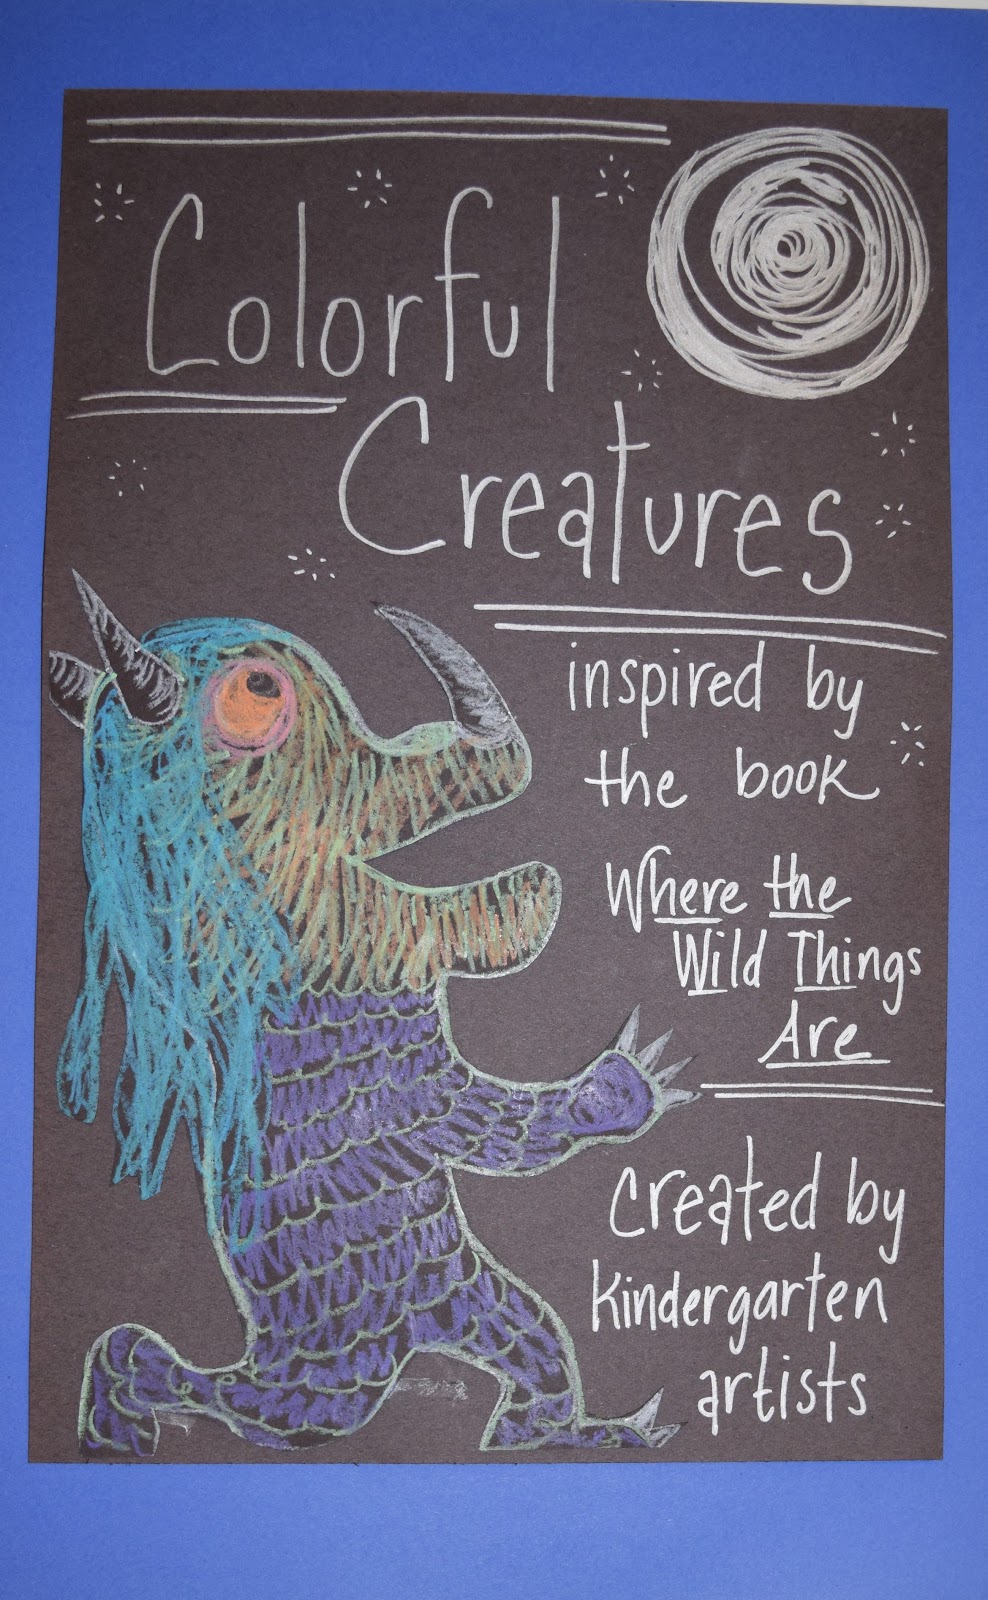 Colorful
Creatures
inspired by
the book
Where the
Wild Things
Are
Created by
kindergarten
artists